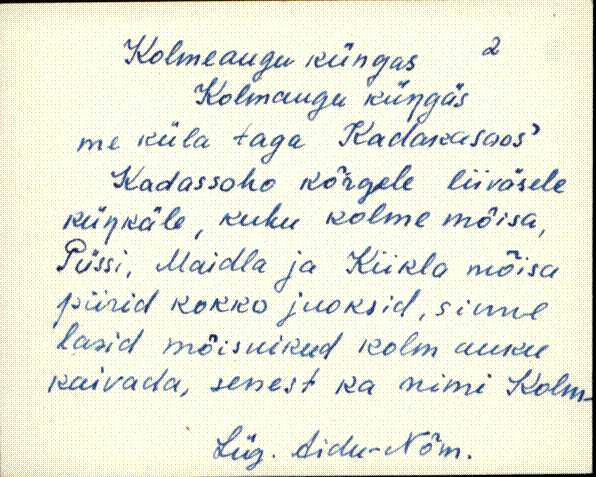 Kolmeaugu küngas 2
Kolmaugu küŋgäs
me küla taga Kadakasoos
Kadassoho kõrgele liiväsele
küŋkäle, kuhu kolme mõisa,
Püssi, Maidla ja Kiikla mõisa
piirid kokko juoksid, sinne
lasid mõisnikud kolm auku
kaivada, senest ka nimi Kolm-
Lüg. Aidu-Nõm.